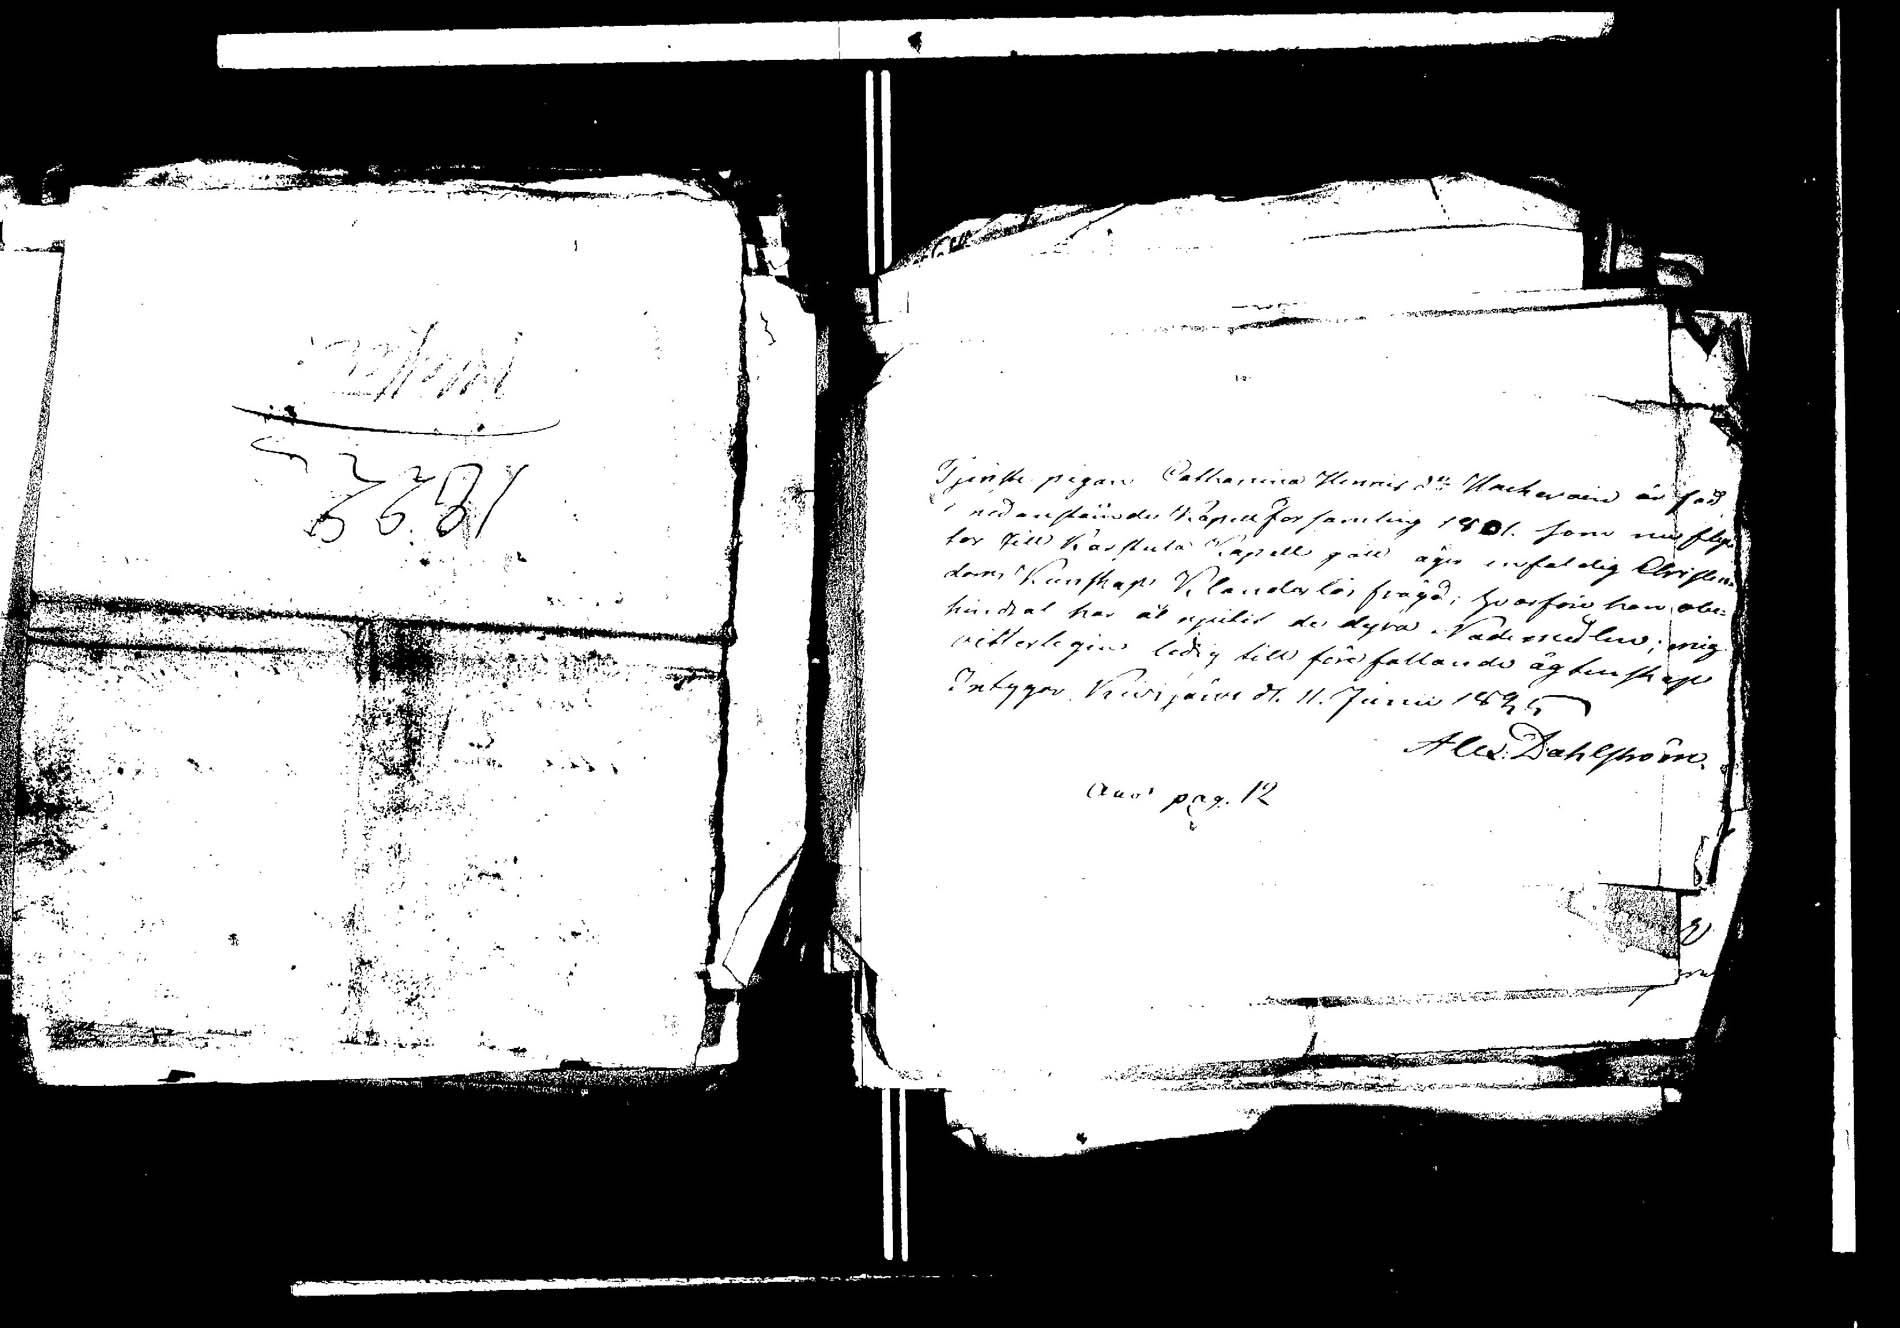 1822
Tjenste pigan Catharina Henrics dr Hackarain är född
i nedanstående Kapellforsamling 1801. som nu flyt
ter till Karstula Kapell gäll äger enfaldig Christen
doms Kunskap Klanderlös frägd; hvarföre hon obe-
hindrat har åt njutit de dyra Nademedlen; mig
vitterligen ledig till före fallande ägtenskap
Intygar Kivijärvi d. 11. Junii 182
Alex. Dahlström.
pag. 12